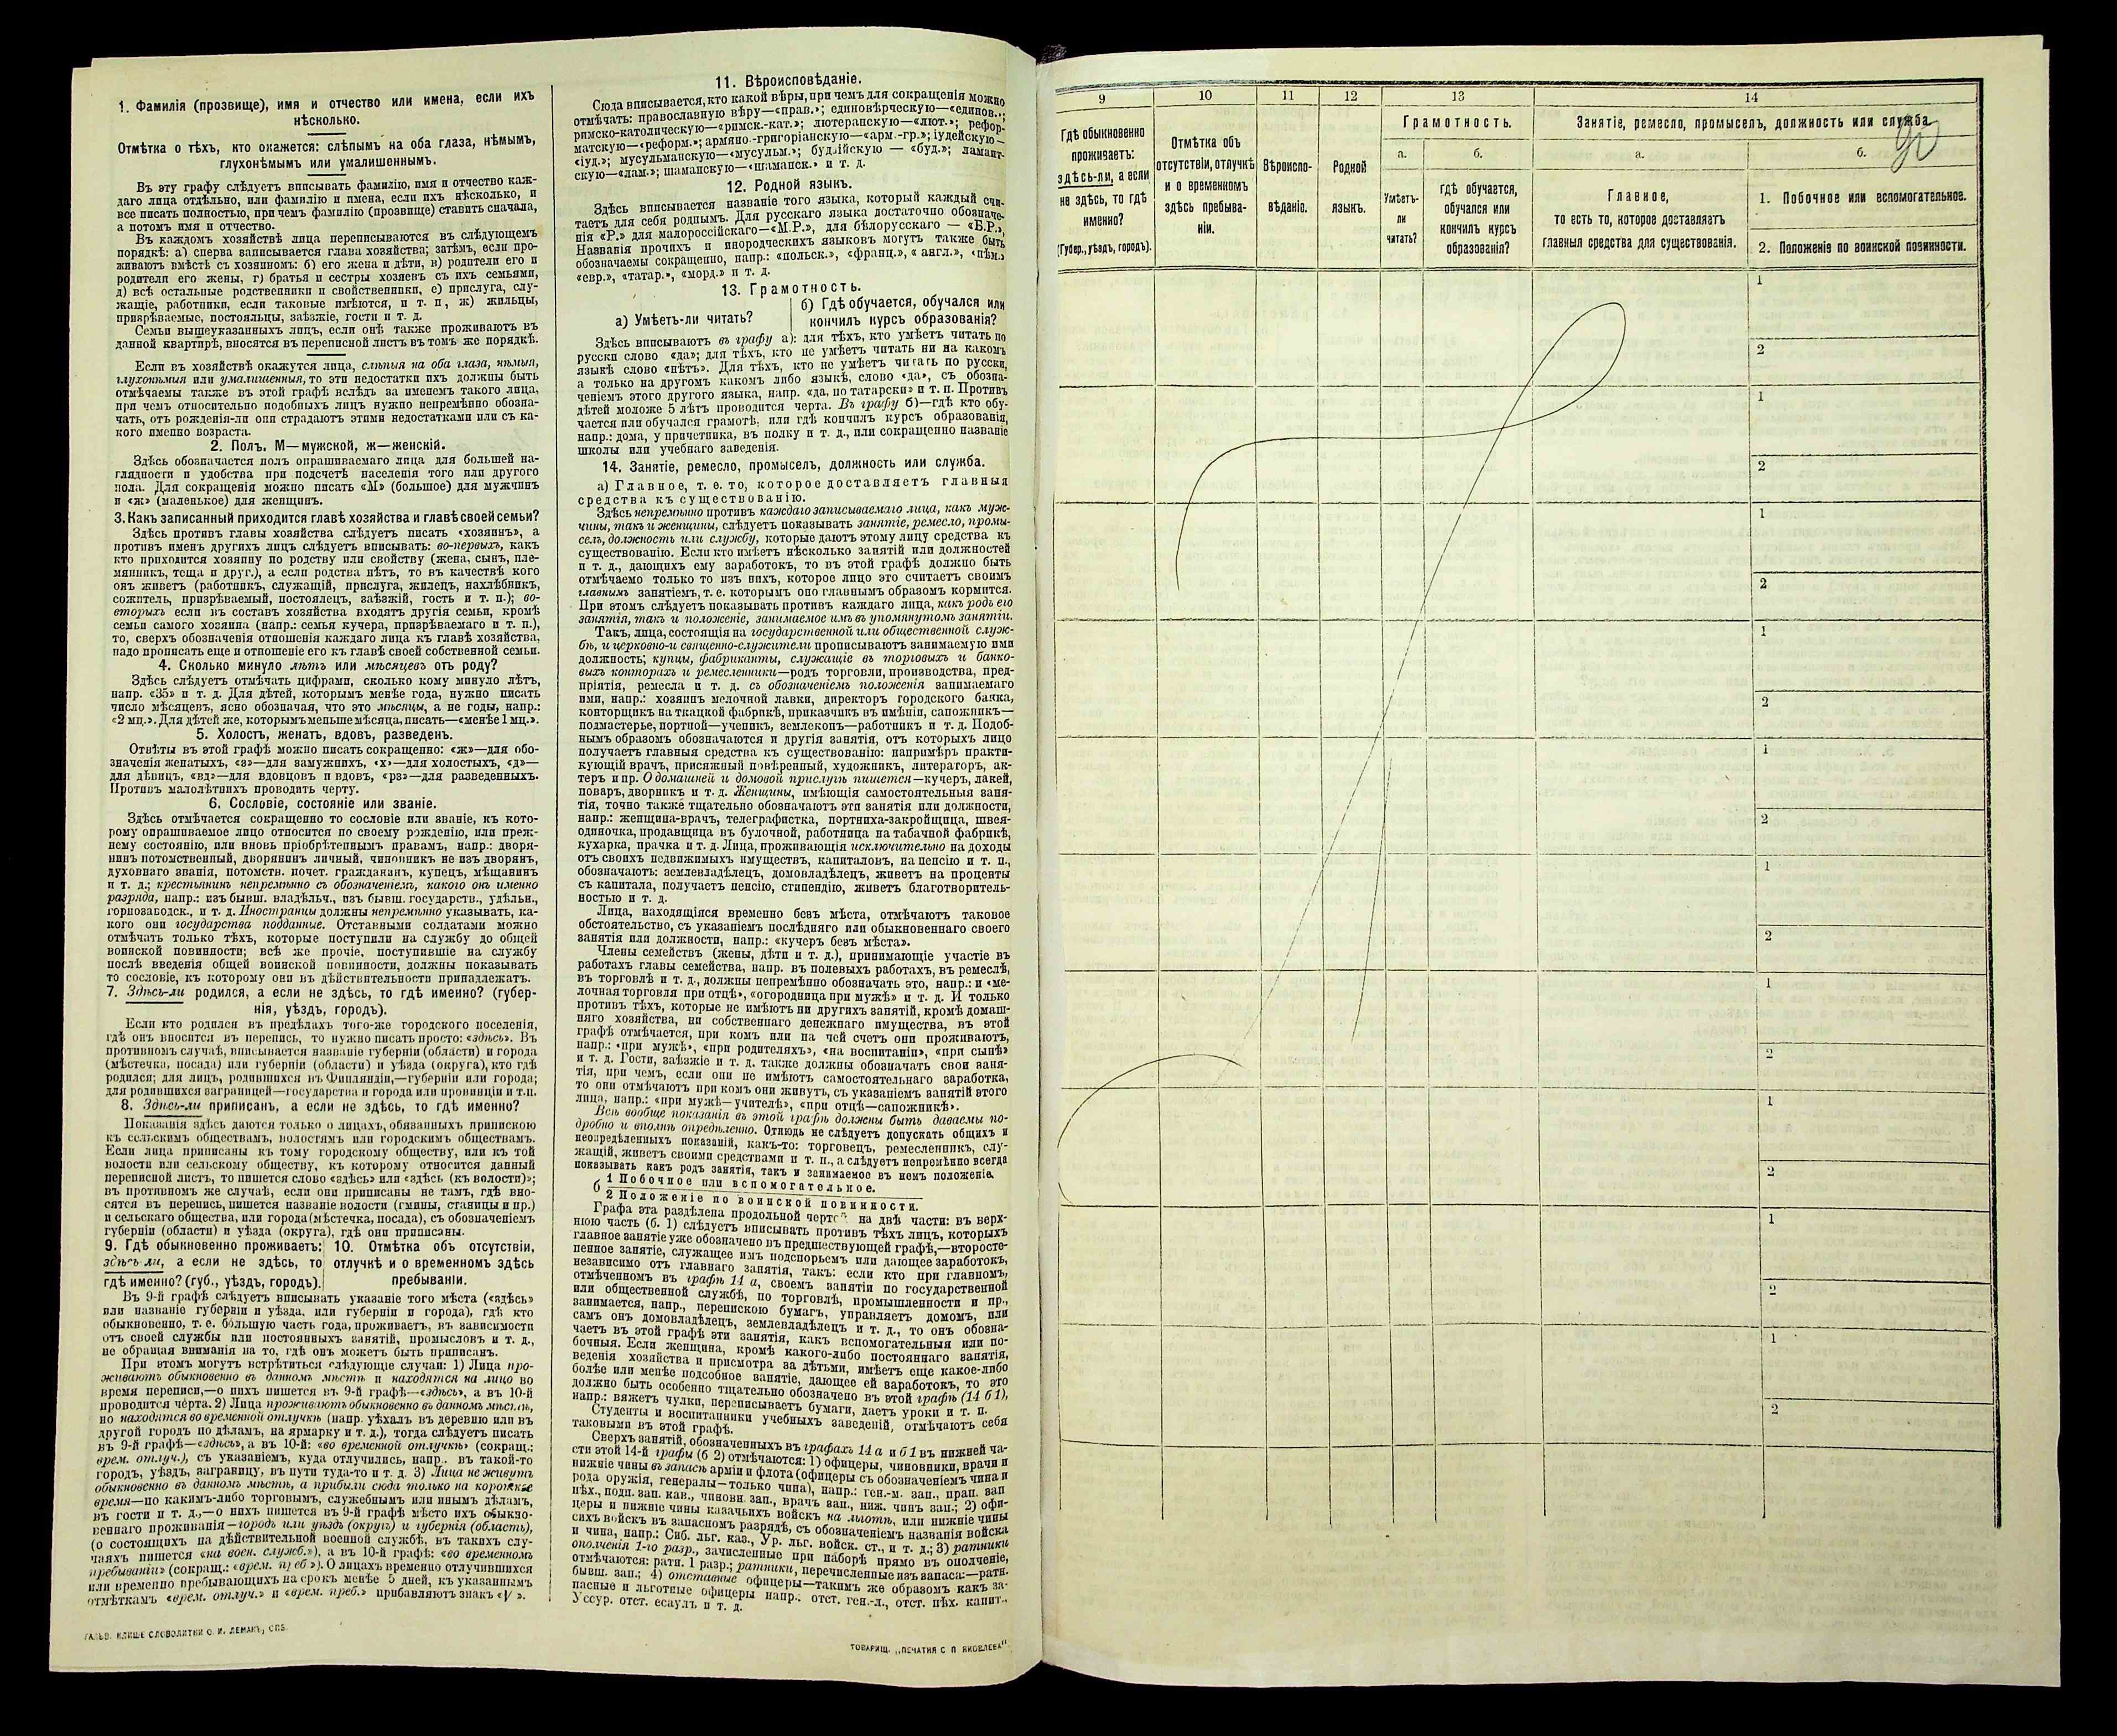 1. Фамилія (прозвище), имя и отчество или имена, если ихъ
нѣсколько.
Отмѣтка о тѣхъ, кто окажется: слѣпымъ на оба глаза, нѣмымъ,
глухонѣмымъ или умалишеннымъ.
Въ эту графу слѣдуетъ вписывать фамилію, имя и отчество каж-
даго лица отдѣльно, или фамилію и имена, если ихъ нѣсколько, и
все писать полностью, при чемъ фамилію (прозвище) ставить сначала,
а потомъ имя и отчество.
Въ каждомъ хозяйствѣ лица переписываются въ слѣдующемъ
порядкѣ: а) сперва записывается глава хозяйства; затѣмъ, если про-
живаютъ вмѣстѣ съ хозяиномъ: б) его жена и дѣти, в) родители его и
родители его жены, г) братья и сестры хозяевъ съ ихъ семьями,
д) всѣ остальные родственники и свойственники, е) прислуга, слу-
жащіе, работники, если таковые имѣются, и т. п., ж) жильцы,
призрѣваемые, постояльцы, заѣзжіе, гости и т. п.
Семьи вышеуказанныхъ лицъ, если онѣ также проживаютъ въ
данной квартирѣ, вносятся въ переписной листъ въ томъ же порядкѣ.
Если въ хозяйствѣ окажутся лица, слѣпыя на оба глаза, нѣмыя,
глухонѣмыя или умалишенныя, то эти недостатки ихъ должны быть
отмѣчаемы также въ этой графѣ вслѣдъ за именемъ такого лица,
при чемъ относительно подобныхъ лицъ нужно непремѣнно обозна-
чать, отъ рожденія-ли они страдаютъ этими недостатками или съ ка-
кого именно возраста.
2. Полъ, М—мужской, ж—женскій.
Здѣсь обозначается полъ опрашиваемаго лица для большей на-
глядности и удобства при подсчетѣ населенія того или другого
пола. Для сокращенія можно писать «М» (большое) для мужчинъ
и «ж» (маленькое) для женщинъ.
3. Какъ записанный приходится главѣ хозяйства и главѣ своей семьи?
Здѣсь противъ главы хозяйства слѣдуетъ писать «хозяинъ», а
противъ именъ другихъ лицъ слѣдуетъ вписывать: во-первыхъ, какъ
кто приходится хозяину по родству или свойству (жена, сынъ, пле-
мянникъ, теща и друг.), а если родства нѣтъ, то въ качествѣ кого
онъ живетъ (работникъ, служащій, прислуга, жилецъ, нахлѣбникъ,
сожитель, призрѣваемый, постоялецъ, заѣзжій, гость и т. п.); во-
вторыхъ если въ составъ хозяйства входятъ другія семьи, кромѣ
семьи самого хозяина (напр.: семья кучера, призрѣваемаго и т. п.),
то, сверхъ обозначенія отношенія каждаго лица къ главѣ хозяйства,
надо прописать еще и отношеніе его къ главѣ своей собственной семьи.
4. Сколько минуло лѣтъ или мѣсяцевъ отъ роду?
Здѣсь слѣдуетъ отмѣчать цифрами, сколько кому минуло лѣтъ,
напр. «35» и т. д. Для дѣтей, которымъ менѣе года, нужно писать
число мѣсяцевъ, ясно обозначая, что это мѣсяцы, а не годы, напр.:
«2 мц.». Для дѣтей же, которымъ меньше мѣсяца, писать—«менѣе 1 мц.».
5. Холостъ, женатъ, вдовъ, разведенъ.
Отвѣты въ этой графѣ можно писать сокращенно: «ж»—для обо-
значенія женатыхъ, «з»—для замужнихъ, «х»—для холостыхъ, «д»—
для дѣвицъ, «вд»—для вдовцовъ и вдовъ, «рз»—для разведенныхъ.
Противъ малолѣтнихъ проводить черту.
6. Сословіе, состояніе или званіе.
Здѣсь отмѣчается сокращенно то сословіе или званіе, къ кото-
рому опрашиваемое лицо относится по своему рожденію, или преж-
нему состоянію, или вновь пріобрѣтеннымъ правамъ, напр.: дворя-
нинъ потомственный, дворянинъ личный, чиновникъ не изъ дворянъ,
духовнаго званія, потомств. почет. гражданинъ, купецъ, мѣщанинъ
и т. д.; крестьянинъ непремѣнно съ обозначеніемъ, какого онъ именно
разряда, напр.: изъ бывш. владѣльч., изъ бывш. государств., удѣльн.,
горнозаводск., и т. д. Иностранцы должны непремѣнно указывать, ка-
кого они государства подданные. Отставными солдатами можно
отмѣчать только тѣхъ, которые поступили на службу до общей
воинской повинности; всѣ же прочіе, поступившіе на службу
послѣ введенія общей воинской повинности, должны показывать
то сословіе, къ которому они въ дѣйствительности принадлежатъ.
7. Здѣсь-ли родился, а если не здѣсь, то гдѣ именно? (губер-
нія, уѣздъ, городъ).
Если кто родился въ предѣлахъ того-же городского поселенія,
гдѣ онъ вносится въ перепись, то нужно писать просто: «здѣсь». Въ
противномъ случаѣ, вписывается названіе губерніи (области) и города
(мѣстечка, посада) или губерніи (области) и уѣзда (округа), кто гдѣ
родился; для лицъ, родившихся въ Финляндіи,—губерніи или города;
для родившихся заграницей—государства и города или провинціи и т.п.
8. Здѣсь-ли приписанъ, а если не здѣсь, то гдѣ именно?
Показанія здѣсь даются только о лицахъ, обязанныхъ припискою
къ сельскимъ обществамъ, волостямъ или городскимъ обществамъ.
Если лица приписаны къ тому городскому обществу, или къ той
волости или сельскому обществу, къ которому относится данный
переписной листъ, то пишется слово «здѣсь» или «здѣсь (къ волости)»;
въ противномъ же случаѣ, если они приписаны не тамъ, гдѣ вно-
сятся въ перепись, пишется названіе волости (гмины, станицы и пр.)
и сельскаго общества, или города (мѣстечка, посада), съ обозначеніемъ
губерніи (области) и уѣзда (округа), гдѣ они приписаны.
9. Гдѣ обыкновенно проживаетъ:
здѣсь-ли, а если не здѣсь, то
гдѣ именно? (губ., уѣздъ, городъ).
10. Отмѣтка объ отсутствіи,
отлучкѣ и о временномъ здѣсь
пребываніи.
Въ 9-й графѣ слѣдуетъ вписывать указаніе того мѣста («здѣсь»
или названіе губерніи и уѣзда, или губерніи и города), гдѣ кто
обыкновенно, т. е. бо́льшую часть года, проживаетъ, въ зависимости
отъ своей службы или постоянныхъ занятій, промысловъ и т. д.,
не обращая вниманія на то, гдѣ онъ можетъ быть приписанъ.
При этомъ могутъ встрѣтиться слѣдующіе случаи: 1) Лица про-
живаютъ обыкновенно въ данномъ мѣстѣ и находятся на лицо во
время переписи,—о нихъ пишется въ 9-й графѣ—«здѣсь», а въ 10-й
проводится че́рта. 2) Лица проживаютъ обыкновенно въ данномъ мѣстѣ,
но находятся во временной отлучкѣ (напр. уѣхалъ въ деревню или въ
другой городъ по дѣламъ, на ярмарку и т. д.), тогда слѣдуетъ писать
въ 9-й графѣ—«здѣсь», а въ 10-й: «во временной отлучкѣ» (сокращ.:
врем. отлуч.), съ указаніемъ, куда отлучились, напр.. въ такой-то
городъ, уѣздъ, заграницу, въ пути туда-то и т. д. 3) Лица не живутъ
обыкновенно въ данномъ мѣстѣ, а прибыли сюда только на короткое
время—по какимъ-либо торговымъ, служебнымъ или инымъ дѣламъ,
въ гости и т. д.,—о нихъ пишется въ 9-й графѣ мѣсто ихъ обыкно-
веннаго проживанія—городъ или уѣздъ (округъ) и губернія (область),
(о состоящихъ на дѣйствительной военной службѣ, въ такихъ слу-
чаяхъ пишется «на воен. служб.»), а въ 10-й графѣ: «во временномъ
пребываніи» (сокращ.: «врем. преб.»). О лицахъ временно отлучившихся
или временно пребывающихъ на срокъ менѣе 5 дней, къ указаннымъ
отмѣткамъ «врем. отлуч.» и «врем. преб.» прибавляютъ знакъ «V».
ГАЛЬВ. КЛИШЕ СЛОВОЛИТНИ О. И. ЛЕМАНЪ, СПБ.
11. Вѣроисповѣданіе.
Сюда вписывается, кто какой вѣры, при чемъ для сокращенія можно
отмѣчать: православную вѣру—«прав.»; единовѣрческую—«единов.»;
римско-католическую—«римск.-кат.»; лютеранскую—«лют.»; рефор-
матскую—«реформ.»; армяно.-григоріанскую—«арм.-гр.»; іудейскую—
«іуд.»; мусульманскую—«мусульм.»; буддійскую — «буд.»; ламаит-
скую—«лам.»; шаманскую—«шаманск.» и т. д.
12. Родной языкъ.
Здѣсь вписывается названіе того языка, который каждый счи-
таетъ для себя роднымъ. Для русскаго языка достаточно обозначе-
нія «Р.» для малороссійскаго—«М.Р.», для бѣлорусскаго — «Б.Р.»,
Названія прочихъ и инородческихъ языковъ могутъ также быть
обозначаемы сокращенно, напр.: «польск.», «франц.», « англ.», «нѣм.»
«евр.», «татар.», «морд.» и т. д.
13. Грамотность.
а) Умѣетъ-ли читать?
б) Гдѣ обучается, обучался или
кончилъ курсъ образованія?
Здѣсь вписываютъ въ графу а): для тѣхъ, кто умѣетъ читать по
русски слово «да»; для тѣхъ, кто не умѣетъ читать ни на какомъ
языкѣ слово «нѣтъ». Для тѣхъ, кто не умѣетъ читать по русски,
а только на другомъ какомъ либо языкѣ, слово «да», съ обозна-
ченіемъ этого другого языка, напр. «да, по татарски» и т. п. Противъ
дѣтей моложе 5 лѣтъ проводится черта. Въ графу б)—гдѣ кто обу-
чается или обучался грамотѣ, или гдѣ кончилъ курсъ образованія,
напр.: дома, у причетника, въ полку и т. д., или сокращенно названіе
школы или учебнаго заведенія.
14. Занятіе, ремесло, промыселъ, должность или служба.
а) Главное, т. е. то, которое доставляетъ главныя
средства къ существованію.
Здѣсь непремѣнно противъ каждаго записываемаго лица, какъ муж-
чины, такъ и женщины, слѣдуетъ показывать занятіе, ремесло, промы-
селъ, должность или службу, которые даютъ этому лицу средства къ
существованію. Если кто имѣетъ нѣсколько занятій или должностей
и т. д., дающихъ ему заработокъ, то въ этой графѣ должно быть
отмѣчаемо только то изъ нихъ, которое лицо это считаетъ своимъ
главнымъ занятіемъ, т. е. которымъ оно главнымъ образомъ кормится.
При этомъ слѣдуетъ показывать противъ каждаго лица, какъ родъ его
занятія, такъ и положеніе, занимаемое имъ въ упомянутомъ занятіи.
Такъ, лица, состоящія на государственной или общественной служ-
бѣ, и церковно-и священно-служители прописываютъ занимаемую ими
должность; купцы, фабриканты, служащіе въ торговыхъ и банко-
выхъ конторахъ и ремесленники—родъ торговли, производства, пред-
пріятія, ремесла и т. д. съ обозначеніемъ положенія занимаемаго
ими, напр.: хозяинъ мелочной лавки, директоръ городского банка,
конторщикъ на ткацкой фабрикѣ, приказчикъ въ имѣніи, сапожникъ—
подмастерье, портной—ученикъ, землекопъ—работникъ и т. д. Подоб-
нымъ образомъ обозначаются и другія занятія, отъ которыхъ лицо
получаетъ главныя средства къ существованію: напримѣръ практи-
кующій врачъ, присяжный повѣренный, художникъ, литераторъ, ак-
теръ и пр. О домашней и домовой прислугѣ пишется—кучеръ, лакей,
поваръ, дворникъ и т. д. Женщины, имѣющія самостоятельныя заня-
тія, точно также тщательно обозначаютъ эти занятія или должности,
напр.: женщина-врачъ, телеграфистка, портниха-закройщица, швея-
одиночка, продавщица въ булочной, работница на табачной фабрикѣ,
кухарка, прачка и т. д. Лица, проживающія исключительно на доходы
отъ своихъ недвижимыхъ имуществъ, капиталовъ, на пенсію и т. п.,
обозначаютъ: землевладѣлецъ, домовладѣлецъ, живетъ на проценты
съ капитала, получаетъ пенсію, стипендію, живетъ благотворитель-
ностью и т. д.
Лица, находящіяся временно безъ мѣста, отмѣчаютъ таковое
обстоятельство, съ указаніемъ послѣдняго или обыкновеннаго своего
занятія или должности, напр.: «кучеръ безъ мѣста».
Члены семействъ (жены, дѣти и т. д.), принимающіе участіе въ
работахъ главы семейства, напр. въ полевыхъ работахъ, въ ремеслѣ,
въ торговлѣ и т. д., должны непремѣнно обозначать это, напр.: и «ме-
лочная торговля при отцѣ», «огородница при мужѣ» и т. д. И только
противъ тѣхъ, которые не имѣютъ ни другихъ занятій, кромѣ домаш-
няго хозяйства, ни собственнаго денежнаго имущества, въ этой
графѣ отмѣчается, при комъ или на чей счетъ они проживаютъ,
напр.: «при мужѣ», «при родителяхъ», «на воспитаніи», «при сынѣ»
и т. д. Гости, заѣзжіе и т. д. также должны обозначать свои заня-
тія, при чемъ, если они не имѣютъ самостоятельнаго заработка,
то они отмѣчаютъ при комъ они живутъ, съ указаніемъ занятій этого
лица, напр.: «при мужѣ—учителѣ», «при отцѣ—сапожникѣ».
Всѣ вообще показанія въ этой графѣ должны быть даваемы по-
дробно и вполнѣ опредѣленно. Отнюдь не слѣдуетъ допускать общихъ и
неопредѣленныхъ показаній, какъ-то: торговецъ, ремесленникъ, слу-
жащій, живетъ своими средствами и т. п., а слѣдуетъ непремѣнно всегда
показывать какъ родъ занятія, такъ и занимаемое въ немъ положеніе.
б 1 Побочное или вспомогательное.
2 Положеніе по воинской повинности.
Графа эта раздѣлена продольной чертой на двѣ части: въ верх-
нюю часть (б. 1) слѣдуетъ вписывать противъ тѣхъ лицъ, которыхъ
главное занятіе уже обозначено въ предшествующей графѣ,—второсте-
пенное занятіе, служащее имъ подспорьемъ или дающее заработокъ,
независимо отъ главнаго занятія, такъ: если кто при главномъ,
отмѣченномъ въ графѣ 14 а, своемъ занятіи по государственной
или общественной службѣ, по торговлѣ, промышленности и пр.,
занимается, напр., перепискою бумагъ, управляетъ домомъ, или
самъ онъ домовладѣлецъ, землевладѣлецъ и т. д., то онъ обозна-
чаетъ въ этой графѣ эти занятія, какъ вспомогательныя или по-
бочныя. Если женщина, кромѣ какого-либо постояннаго занятія,
веденія хозяйства и присмотра за дѣтьми, имѣетъ еще какое-либо
болѣе или менѣе подсобное занятіе, дающее ей заработокъ, то это
должно быть особенно тщательно обозначено въ этой графѣ (14 б 1),
напр.: вяжетъ чулки, переписываетъ бумаги, даетъ уроки и т. п.
Студенты и воспитанники учебныхъ заведеній, отмѣчаютъ себя
таковыми въ этой графѣ.
Сверхъ занятій, обозначенныхъ въ графахъ 14 а и б 1 въ нижней ча-
сти этой 14-й графы (б 2) отмѣчаются: 1) офицеры, чиновники, врачи и
нижніе чины въ запасѣ арміи и флота (офицеры съ обозначеніемъ чина и
рода оружія, генералы—только чина), напр.: ген.-м. зап., прап. зап
пѣх., подп. зап. кав., чиновн. зап., врачъ зап., ниж. чинъ зап.; 2) офи-
церы и нижніе чины казачьихъ войскъ на льготѣ, или нижніе чины
сихъ войскъ въ запасномъ разрядѣ, съ обозначеніемъ названія войска
и чина, напр.: Сиб. льг. каз., Ур. льг. войск. ст., и т. д.; 3) ратники
ополченія 1-го разр., зачисленные при наборѣ прямо въ ополченіе,
отмѣчаются: ратн. 1 разр.; ратники, перечисленные изъ запаса:—ратн.
бывш. зап.; 4) отставные офицеры—такимъ же образомъ какъ за-
пасные и льготные офицеры напр.: отст. ген.-л., отст. пѣх. капит.,
Уссур. отст. есаулъ и т. д.
ТОВАРИЩ. „ПЕЧАТНЯ С П ЯКОВЛЕВА"
9
10
11
12
13
14
Гдѣ обыкновенно
проживаетъ:
здѣсь-ли, а если
не здѣсь, то гдѣ
именно?
(Губер., уѣздъ, городъ).
Отмѣтка объ
отсутствіи, отлучкѣ
и о временномъ
здѣсь пребыва-
ніи.
Вѣроиспо-
вѣданіе.
Родной
языкъ.
Грамотность.
а.
Умѣетъ-
ли
читать?
б.
гдѣ обучается,
обучался или
кончилъ курсъ
образованія?
Занятіе, ремесло, промыселъ, должность или служба.
90
а.
Главное,
то есть то, которое доставляетъ
главныя средства для существованія.
б.
1. Побочное или вспомогательное.
2. Положеніе по воинской повинности.
1
2
1
2
1
2
1
2
1
2
1
2
1
2
1
2
1
2
1
2